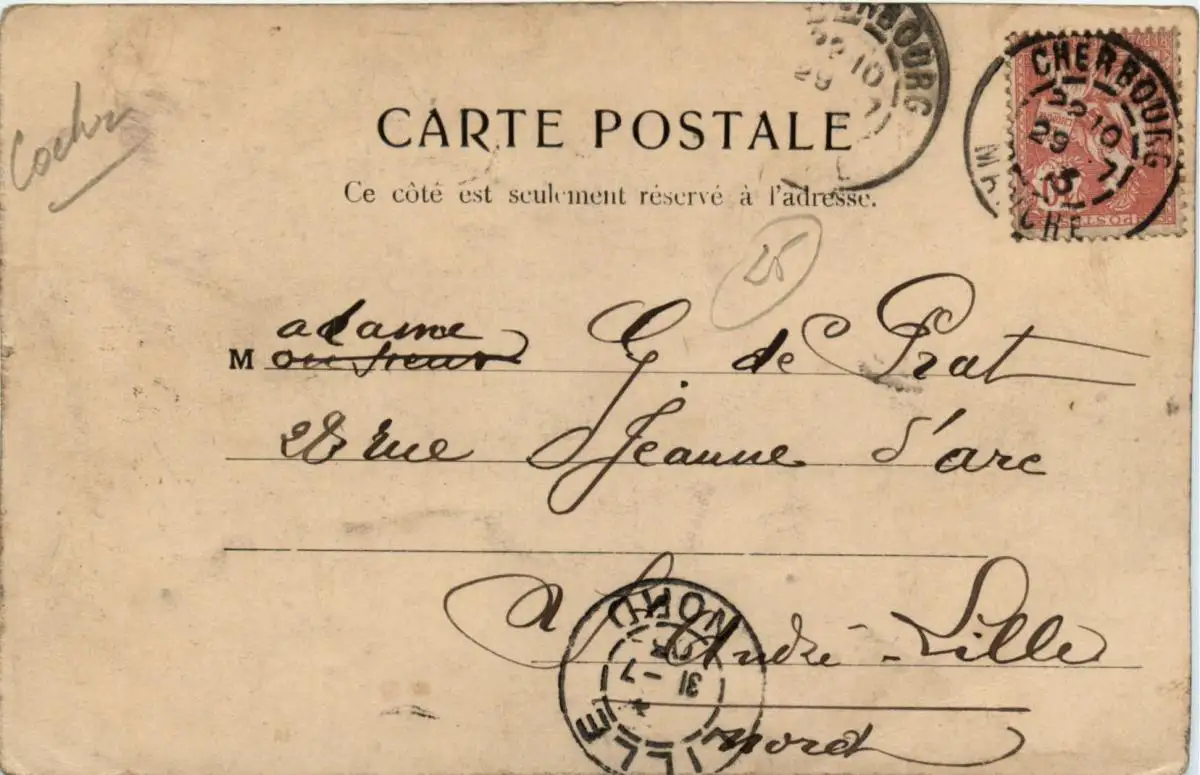 Cochu
CHERBOURG
22 10
29
7
CHERBOURG
22 10
29 7
MANCHE
POSTES
CARTE POSTALE
Ce côté est seulement réservé à l'adresse.
25
adame
M onsieur G. de Prat
28 rue Jeanne d'arc
A St André-Lille
Nord
LILLE
NORD
31-7